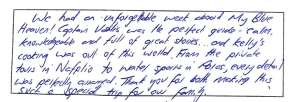 We had an unforgettable week aboard My Blue
Heaven! Captain Vasilis was the perfect guide - calm,
knowledgeable and full of great stories... and Kelly's
cooking was out of this world! From the private
tour in Nafplio to water sports in Poros, every detail
was perfectly curated. Thank you for both making this
such a special trip for our family.